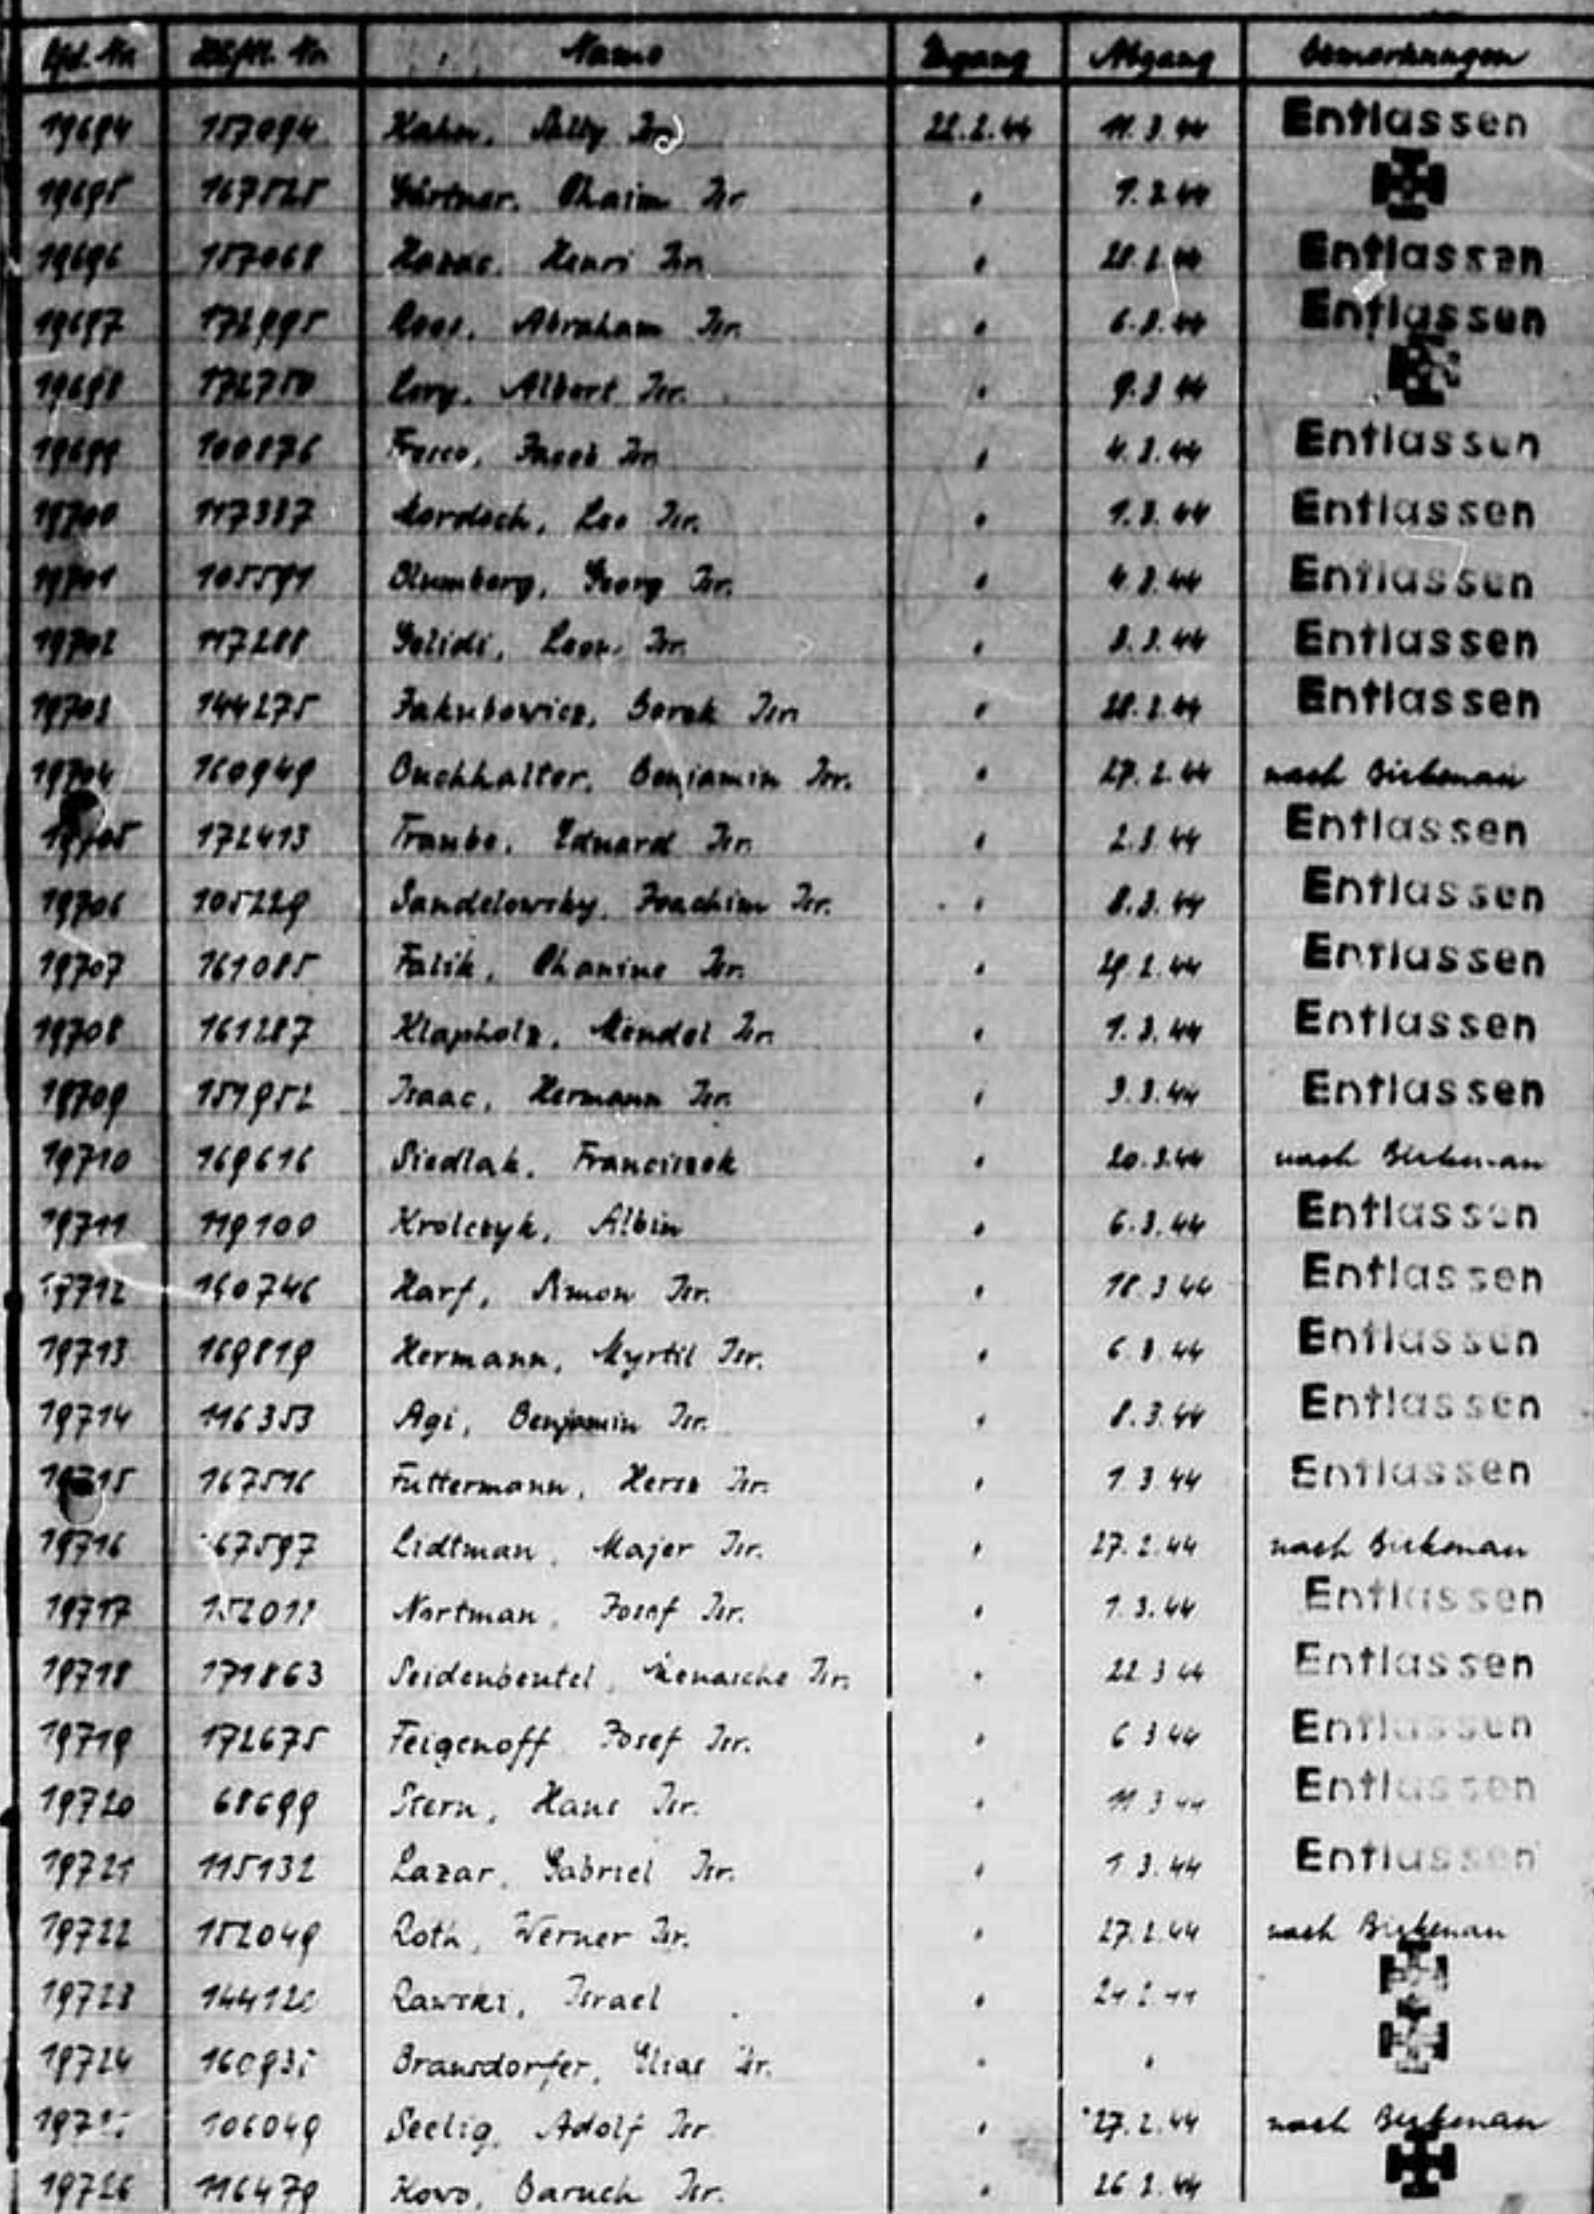 Lfd. Nr. Häftl. Nr. Name Zugang Abgang Bemerkungen
19694 157094 Kahn, Sally Isr. 22.2.44 11.3.44 Entlassen
19695 167525 Gärtner, Chaim Isr. " 1.3.44
19696 157068 Henri Isr. " 28.2.44 Entlassen
19697 172995 Abraham Isr. " 6.3.44 Entlassen
19698 172750 Levy, Albert Isr. " 9.3.44
19699 100876 Jacob Isr. " 4.3.44 Entlassen
19700 117337 Mordoch, Leo Isr. " 1.3.44 Entlassen
19701 105591 Blumberg, Georg Isr. " 4.3.44 Entlassen
19702 117288 Leon Isr. " 3.3.44 Entlassen
19703 144275 Jakubowicz, Berek Isr. " 28.2.44 Entlassen
19704 160949 Buchhalter, Benjamin Isr. " 27.2.44 nach Birkenau
19705 172413 Traube, Eduard Isr. " 2.3.44 Entlassen
19706 105229 Sandelowsky, Joachim Isr. " 8.3.44 Entlassen
19707 161085 Falik, Chanine Isr. " 29.2.44 Entlassen
19708 161287 Klapholz, Mendel Isr. " 1.3.44 Entlassen
19709 151952 Isaac, Hermann Isr. " 3.3.44 Entlassen
19710 169616 Siedlak, Franciszek " 20.3.44 nach Birkenau
19711 119100 Krolczyk, Albin " 6.3.44 Entlassen
19712 160746 Harf, Simon Isr. " 18.3.44 Entlassen
19713 169819 Hermann, Myrtil Isr. " 6.3.44 Entlassen
19714 116353 Agi, Benjamin Isr. " 8.3.44 Entlassen
19715 167516 Futtermann, Hersz Isr. " 1.3.44 Entlassen
19716 67597 Lidtman, Majer Isr. " 27.2.44 nach Birkenau
19717 Nortman, Josef Isr. " 1.3.44 Entlassen
19718 171863 Seidenbeutel, Menasche Isr. " 22.3.44 Entlassen
19719 172675 Feigenoff, Josef Isr. " 6.3.44 Entlassen
19720 68699 Stern, Hans Isr. " 11.3.44 Entlassen
19721 115132 Lazar, Gabriel Isr. " 1.3.44 Entlassen
19722 152049 Roth, Werner Isr. " 27.2.44 nach Birkenau
19723 Rawski, Israel "
19724 Bransdorfer, Elias Isr. " "
106049 Seelig, Adolf Isr. " 27.2.44 nach Birkenau
19726 116479 Kovo, Baruch Isr. " 26.2.44